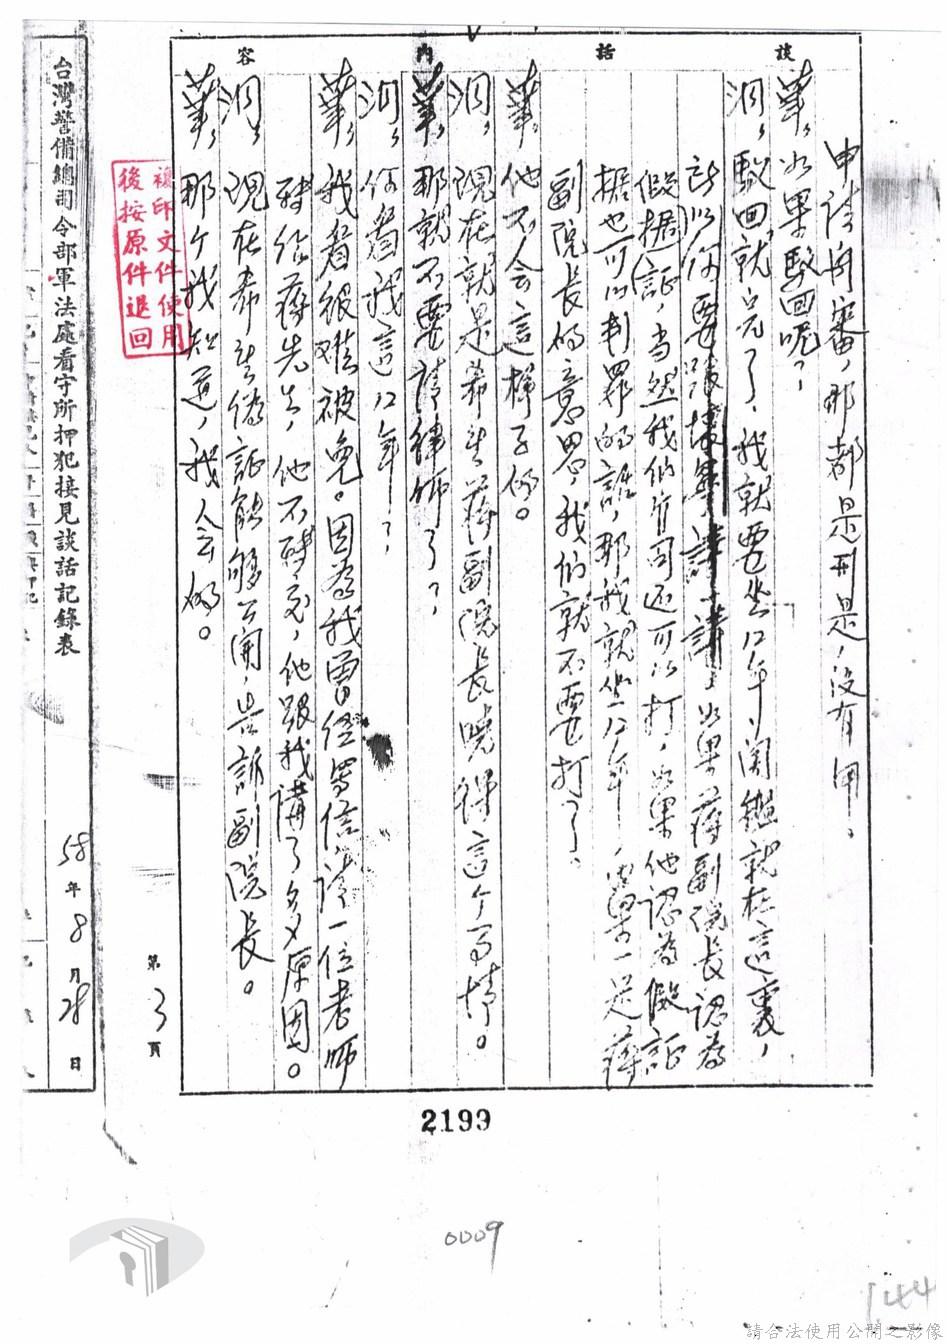 談話內容
申請開審，那都是刑是，沒有用。
華：如果駁回呢？
泗：駁回就完了，我就要坐12年，關鍵就在這裏，
所以你要跟 講一講，如果蔣副院長認為
假據証，当然我们官司还可以打，如果他認為假証
據也可以判罪的話，那我就坐12年，如果不是蔣
副院長的意思，我们就不要打了。
華：他不会這樣子的。
泗：現在就是希望蔣副院長曉得這个事情。
華：那就不要請律师了？
泗：你看我這12年？
華：我看很难被免。因為我曾經寫信請一位老师
轉給蔣先生，他不轉交，他跟我講了多原因。
泗：現在希望偽証能够公開，告訴副院長。
華：那个我知道，我人会的。
複印文件使用
後按原件退回
第3頁
台灣警備總司令部軍法處看守所押犯接見談話記錄表
58年8月28日
2199
0009
144
請合法使用公開之影像